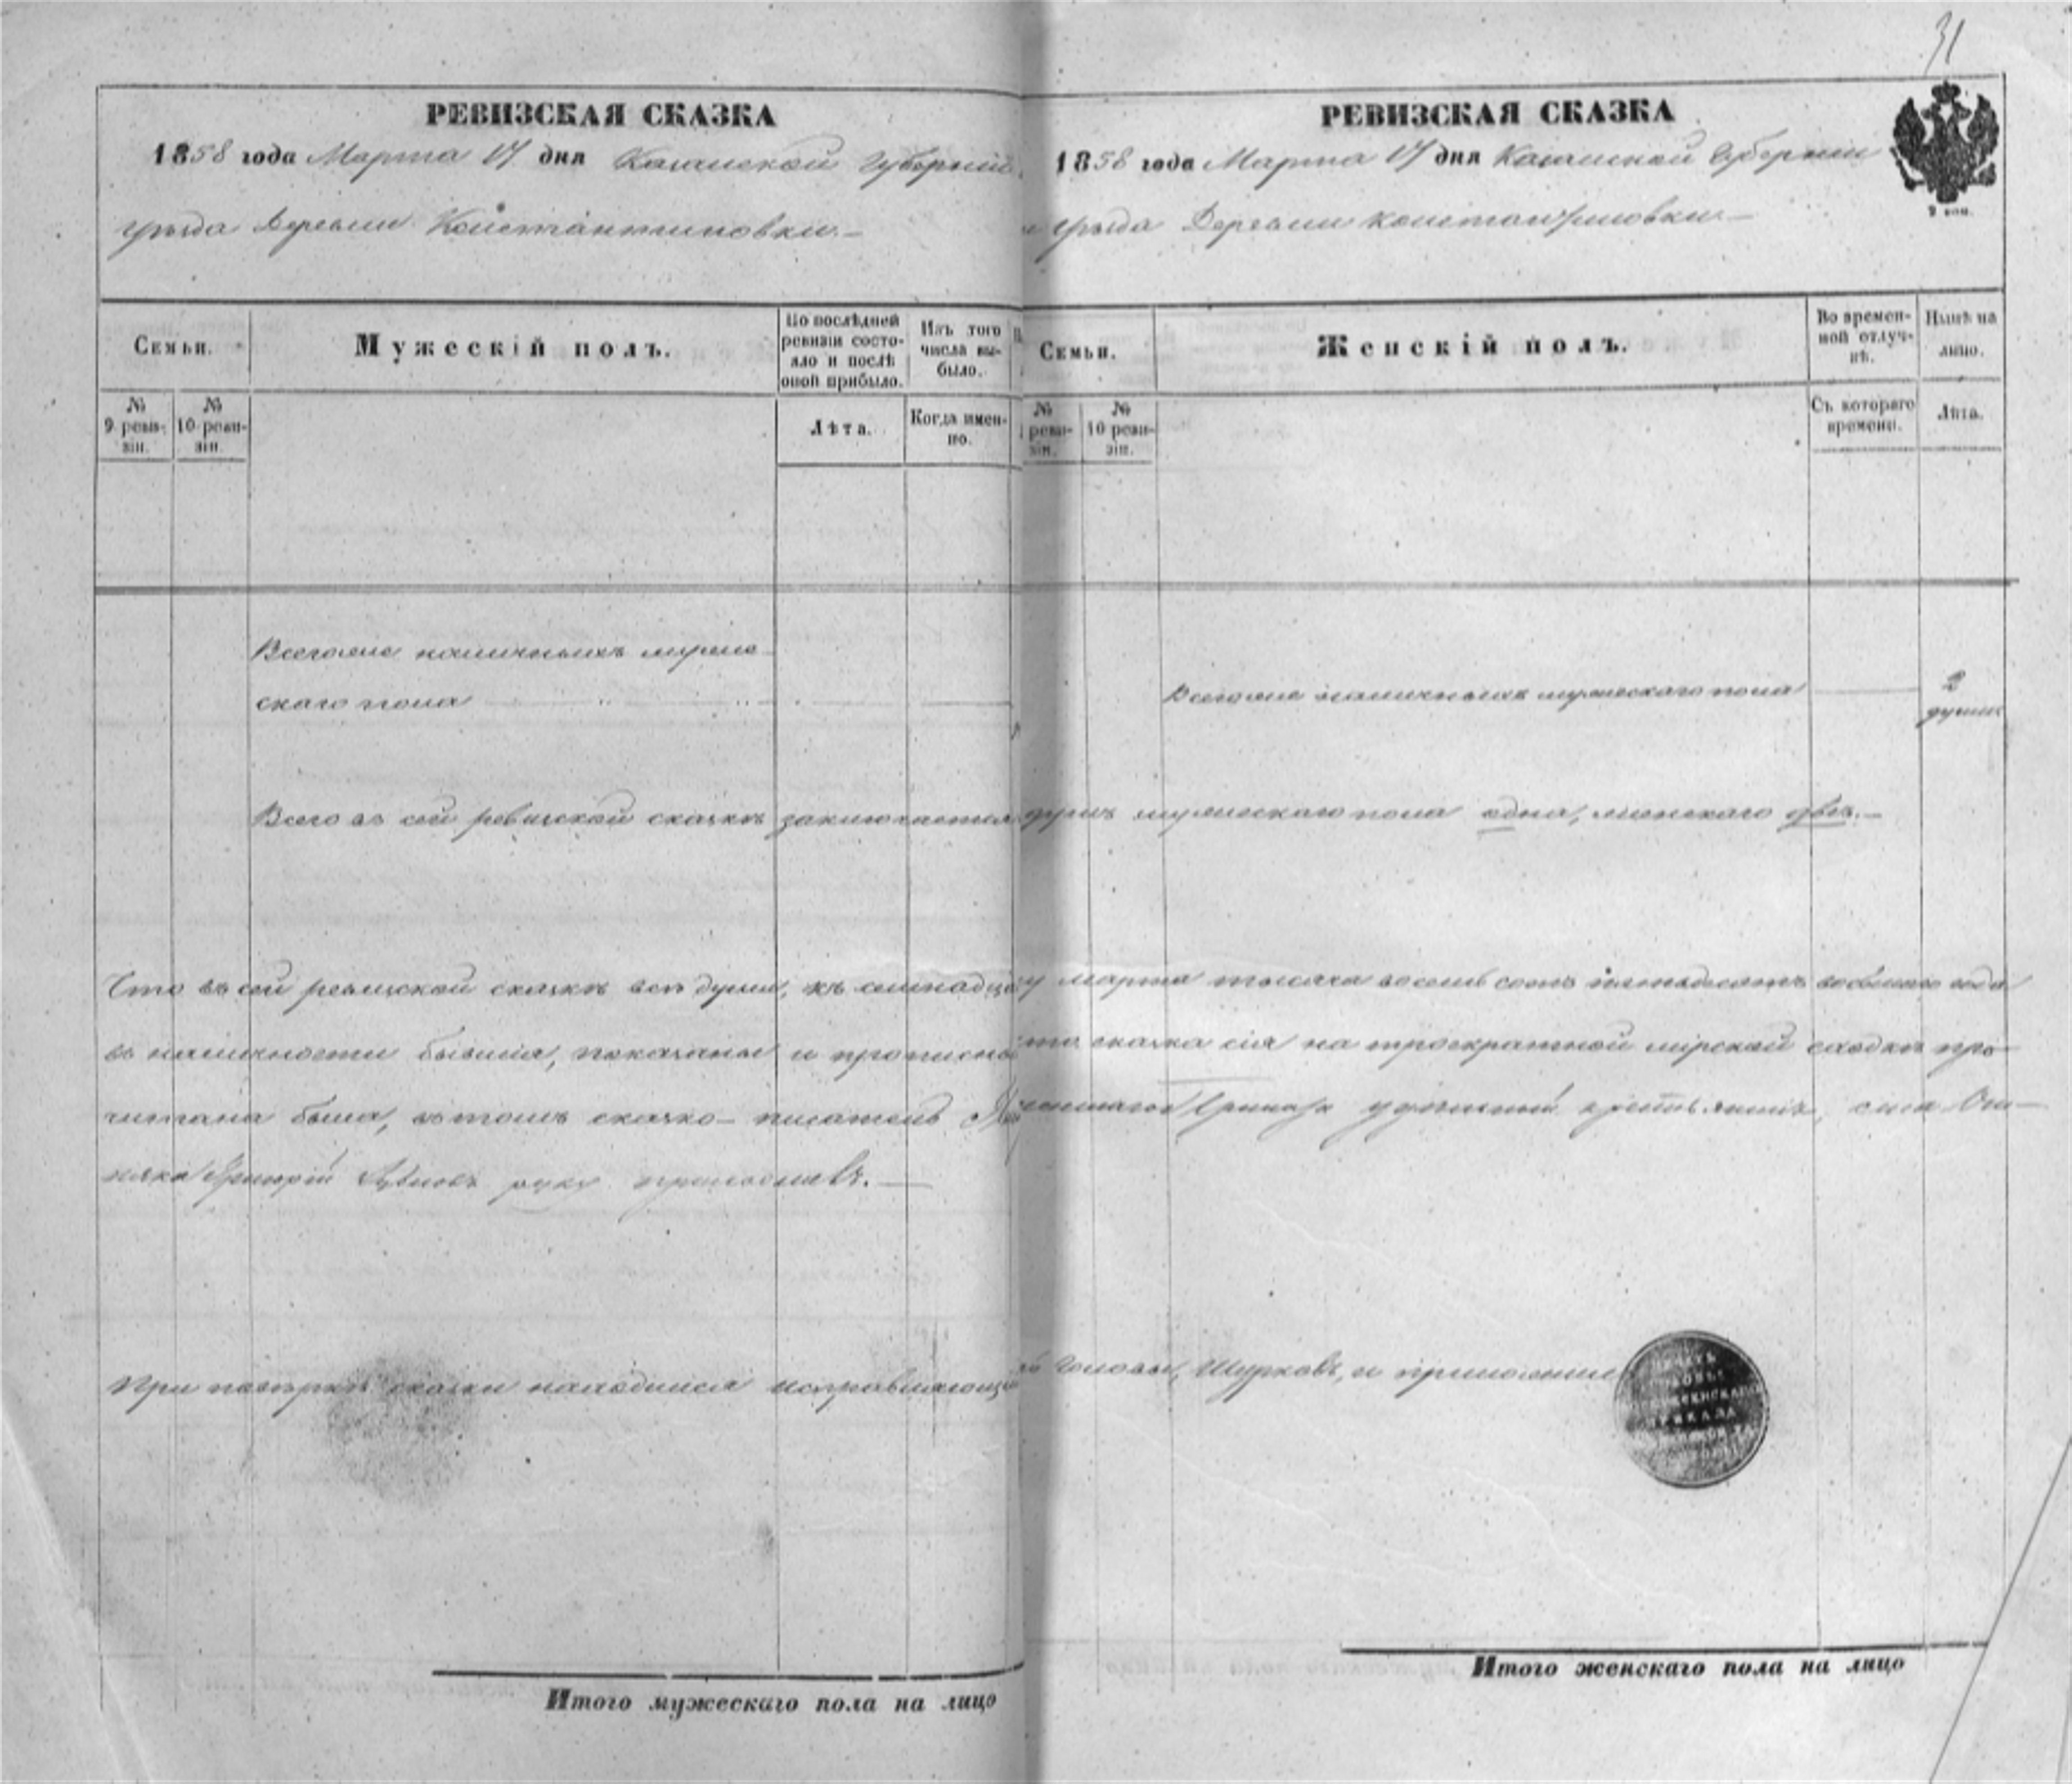 31
РЕВИЗСКАЯ СКАЗКА
1858 года Марта 17 дня Казанской Губерніи
уѣзда Деревни Константиновки.—
Семьи.
Мужескій полъ.
По послѣдней ревизіи состояло и послѣ оной прибыло.
Изъ того числа выбыло.
№ 9 ревизіи.
№ 10 ревизіи.
Лѣта.
Когда именно.
Всего наличныхъ
скаго пола
Всего въ сей ревизской сказкѣ заключается
Что въ сей ревизской сказкѣ всѣ души, къ семнадца
въ наличности бывшія, показаны и прописны
читана была, въ томъ сказко-писатель
Григорій руку приложилъ.—
При повѣркѣ сказки находился исправляющ
Итого мужескаго пола на лицо
РЕВИЗСКАЯ СКАЗКА
1858 года Марта 17 дня Казанской Губерніи
уѣзда Деревни Константиновки—
2 коп.
Семьи.
Женскій полъ.
Во временной отлучкѣ.
Нынѣ на лицо.
№ ревизіи.
№ 10 ревизіи.
Съ котораго времени.
Лѣта.
Всего наличныхъ мужескаго пола
2
души
душъ мужескаго пола одна, женскаго двѣ.—
у марта тысяча восемь сотъ пятьдесятъ восьмаго года
что сказка сія на троекратной мірской сходкѣ про
Приказа удѣльный крестьянинъ,
Головы, Шурковъ, и приложеніе
Итого женскаго пола на лицо